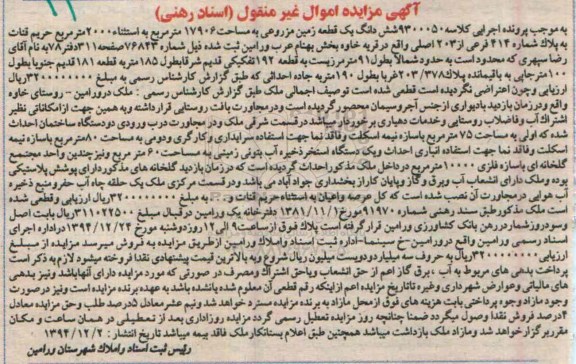 آگهی مزایده اموال غیر منقول (اسناد رهنی)
به موجب پرونده اجرایی کلاسه ۹۳۰۰۰۵۰ شش دانگ یک قطعه زمین مزروعی به مساحت ۱۷۹۰۶ مترمربع به استثناء ۲۰۰۰ مترمربع حریم قنات
به پلاک شماره ۴۱۴ فرعی از ۲۰۳ اصلی واقع در قریه خاوه بخش بهنام عرب ورامین ثبت شده ذیل شماره ۷۶۸۴۳ صفحه ۳۱۱ دفتر ۷۸ به نام آقای
رضا سپهری که محدود است به حدود شمالاً بطول ۹۱ متر مرزیست به قطعه ۱۹۲ تفکیکی قدیم شرقا بطول ۱۸۵ متر به قطعه ۱۸۱ قدیم جنوبا بطول
۱۰۰ متر جایی به باقیمانده پلاک ۲۰۳/۳۷۸ غربا بطول ۱۹۰ متر به جاده احداثی که طبق گزارش کارشناس رسمی به مبلغ ۳۲۰۰۰۰۰۰۰۰۰ ریال
ارزیابی و چون اعتراضی نگردیده است قطعی شده است توصیف اجمالی ملک طبق گزارش کارشناس رسمی : ملک در ورامین - روستای خاوه
واقع و در زمان بازدید با دیواری از جنس آجر و سیمان محصور گردیده است و در مجاورت بافت روستایی قرار داشته و به همین جهت از امکاناتی نظیر
اشتراک آب و فاضلاب روستایی و خدمات دهیاری برخوردار میباشد در قسمت شرقی ملک و در مجاورت درب ورودی دو دستگاه ساختمان احداث
شده که اولی به مساحت ۷۵ متر مربع با سازه نیمه اسکلت و فاقد نما جهت استفاده سرایداری و کارگری و دومی به مساحت ۸۰ مترمربع با سازه نیمه
اسکلت و فاقد نما جهت استفاده انباری احداث و یک دستگاه استخر ذخیره آب بتونی زمینی به مساحت ۶۰ متر مربع و نیز چندین واحد مجتمع
گلخانه ای با سازه فلزی ۱۰۰۰۰ مترمربع در داخل ملک مذکور احداث گردیده است که در زمان بازدید گلخانه های مذکور دارای پوشش پلاستیکی
بوده و ملک دارای انشعاب آب و برق و گاز و پایان کار از بخشداری جوادآباد می باشد و در قسمت مرکزی ملک یک حلقه چاه آب حفر و منبع ذخیره
آب هوایی در مجاورت آن نصب شده است که کل عرصه و اعیان به استثناء حریم قنات و ... به مبلغ ۳۲۰۰۰۰۰۰۰۰۰ ریال ارزیابی و قطعی شده
است ملک مذکور طبق سند رهنی شماره ۹۱۹۷۰ مورخ ۱۳۸۱/۱۱/۱ دفترخانه یک ورامین در قبال مبلغ ۳۱۱۰۲۲۵۰۰ ریال بابت اصل
وسود روزشمار در رهن بانک کشاورزی ورامین قرار گرفته است پلاک فوق از ساعت ۹ الی ۱۲ روز دوشنبه مورخ ۱۳۹۴/۱۲/۲۴ در اداره اجرای
اسناد رسمی ورامین واقع در ورامین - خ سینما - اداره ثبت اسناد و املاک ورامین از طریق مزایده به فروش میرسد مزایده از مبلغ
ارزیابی ۳۲۰۰۰۰۰۰۰۰۰ ریال به حروف سه میلیارد و دویست میلیون ریال شروع و به بالاترین قیمت پیشنهادی نقدا فروخته میشود لازم به ذکر است
پرداخت بدهی های مربوط به آب ، برق گاز اعم از حق انشعاب و یا حق اشتراک و مصرف در صورتی که مورد مزایده دارای آنها باشد و نیز بدهی
های مالیاتی و عوارض شهرداری و غیره تا تاریخ مزایده اعم از اینکه رقم قطعی آن معلوم شده یا نشده باشد به عهده برنده مزایده است و نیز در صورت
وجود مازاد وجوه پرداختی بابت هزینه های فوق از محل مازاد به برنده مزایده مسترد خواهد شد و نیم عشر معادل ۵ درصد طلب و حق مزایده معادل
۴ درصد فروش نقدا وصول میگردد ضمنا چنانچه روز مزایده تعطیل رسمی گردد مزایده روز اداری بعد از تعطیلی در همان ساعت و مکان
مقرر برگزار خواهد شد و مازاد ملک بازداشت میباشد همچنین طبق اعلام بستانکار ملک فاقد بیمه میباشد تاریخ انتشار : ۱۳۹۴/۱۲/۲
رئیس ثبت اسناد و املاک شهرستان ورامین